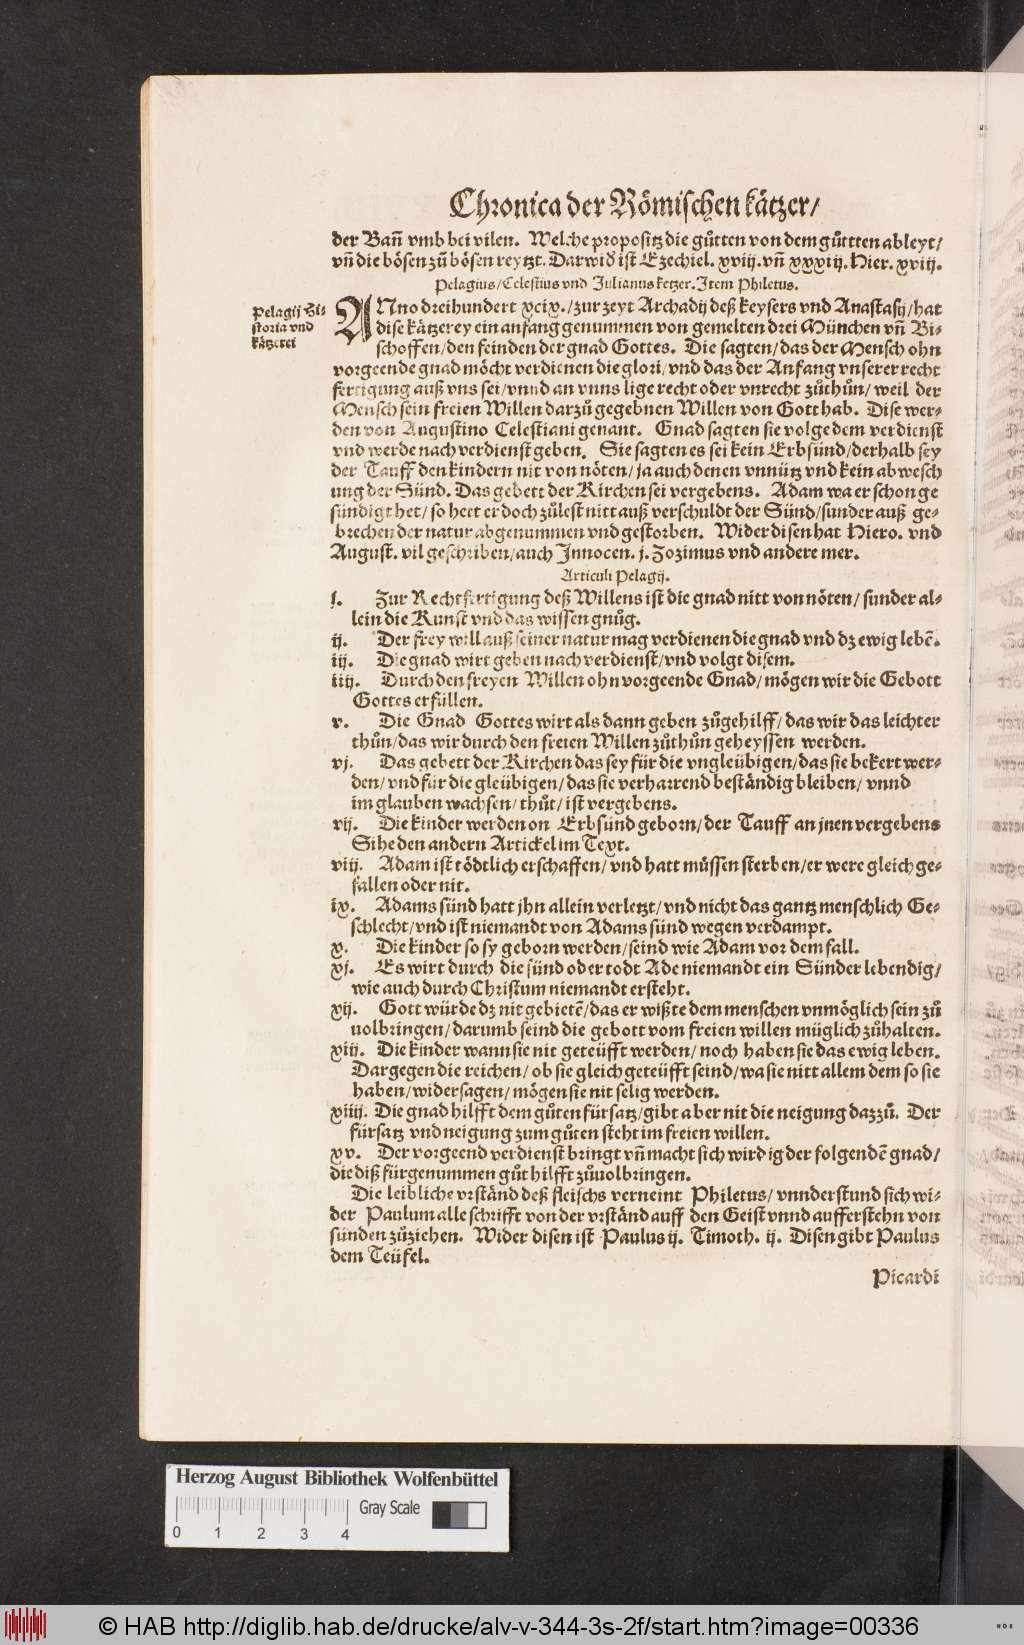 Chronica der Römischen kätzer/
der Bañ vmb bei vilen. Welche propositz die gůtten von dem gůttten ableyt/
vñ die bösen zů bösen reytzt. Darwid ist Ezechiel. xviij. vñ xxxiij. Hier. xviij.
Pelagius/Celestius vnd Julianus ketzer. Item Philetus.
Pelagij Hi-
storia vnd
kätzerei
ANno dreihundert xcix./zur zeyt Archadij deß keysers vnd Anastasij/hat
dise kätzerey ein anfang genummen von gemelten drei München vñ Bi-
schoffen/den feinden der gnad Gottes. Die sagten/das der Mensch ohn
vorgeende gnad möcht verdienen die glori/vnd das der Anfang vnserer recht
fertigung auß vns sei/vnnd an vnns lige recht oder vnrecht zůthůn/weil der
Mensch sein freien Willen darzů gegebnen Willen von Gott hab. Dise wer-
den von Augustino Celestiani genant. Gnad sagten sie volge dem verdienst
vnd werde nach verdienst geben. Sie sagten es sei kein Erbsünd/derhalb sey
der Tauff den kindern nit von nöten/ja auch denen vnnütz vnd kein abwesch
ung der Sünd. Das gebett der Kirchen sei vergebens. Adam wa er schon ge
sündigt het/so hett er doch zůlest nitt auß verschuldt der Sünd/sunder auß ge-
brechen der natur abgenummen vnd gestorben. Wider disen hat Hiero. vnd
August. vil geschriben/auch Innocen. j. Zozimus vnd andere mer.
Articuli Pelagij.
j. Zur Rechtfertigung deß Willens ist die gnad nitt von nöten/sunder al-
lein die Kunst vnd das wissen gnůg.
ij. Der frey will auß seiner natur mag verdienen die gnad vnd dz ewig lebē.
iij. Die gnad wirt geben nach verdienst/vnd volgt disem.
iiij. Durch den freyen Willen ohn vorgeende Gnad/mögen wir die Gebott
Gottes erfüllen.
v. Die Gnad Gottes wirt als dann geben zůgehilff/das wir das leichter
thůn/das wir durch den freien Willen zůthůn geheyssen werden.
vj. Das gebett der Kirchen das sey für die vngleübigen/das sie bekert wer-
den/vnd für die gleübigen/das sie verharrend beständig bleiben/vnnd
im glauben wachsen/thůt/ist vergebens.
vij. Die kinder werden on Erbsünd geborn/der Tauff an jnen vergebens
Sihe den andern Artickel im Text.
viij. Adam ist tödtlich erschaffen/vnd hatt müssen sterben/er were gleich ge-
fallen oder nit.
ix. Adams sünd hatt jhn allein verletzt/vnd nicht das gantz menschlich Ge-
schlecht/vnd ist niemandt von Adams sünd wegen verdampt.
x. Die kinder so sy geborn werden/seind wie Adam vor dem fall.
xj. Es wirt durch die sünd oder todt Ade niemandt ein Sünder lebendig/
wie auch durch Christum niemandt ersteht.
xij. Gott würde dz nit gebietē/das er wißte dem menschen vnmöglich sein zů
volbringen/darumb seind die gebott vom freien willen müglich zůhalten.
xiij. Die kinder wann sie nit geteüfft werden/noch haben sie das ewig leben.
Dargegen die reichen/ob sie gleich geteüfft seind/wa sie nitt allem dem so sie
haben/widersagen/mögen sie nit selig werden.
xiiij. Die gnad hilfft dem gůten fürsatz/gibt aber nit die neigung dazzů. Der
fürsatz vnd neigung zum gůten steht im freien willen.
xv. Der vorgeend verdienst bringt vñ macht sich wirdig der folgendē gnad/
die diß fürgenummen gůt hilfft zůvolbringen.
Die leibliche vrständ deß fleischs verneint Philetus/vnnderstund sich wi-
der Paulum alle schrifft von der vrständ auff den Geist vnnd aufferstehn von
sünden zůziehen. Wider disen ist Paulus ij. Timoth. ij. Disen gibt Paulus
dem Teüfel.
Picardi
Herzog August Bibliothek Wolfenbüttel
Gray Scale
0 1 2 3 4
© HAB http://diglib.hab.de/drucke/alv-v-344-3s-2f/start.htm?image=00336